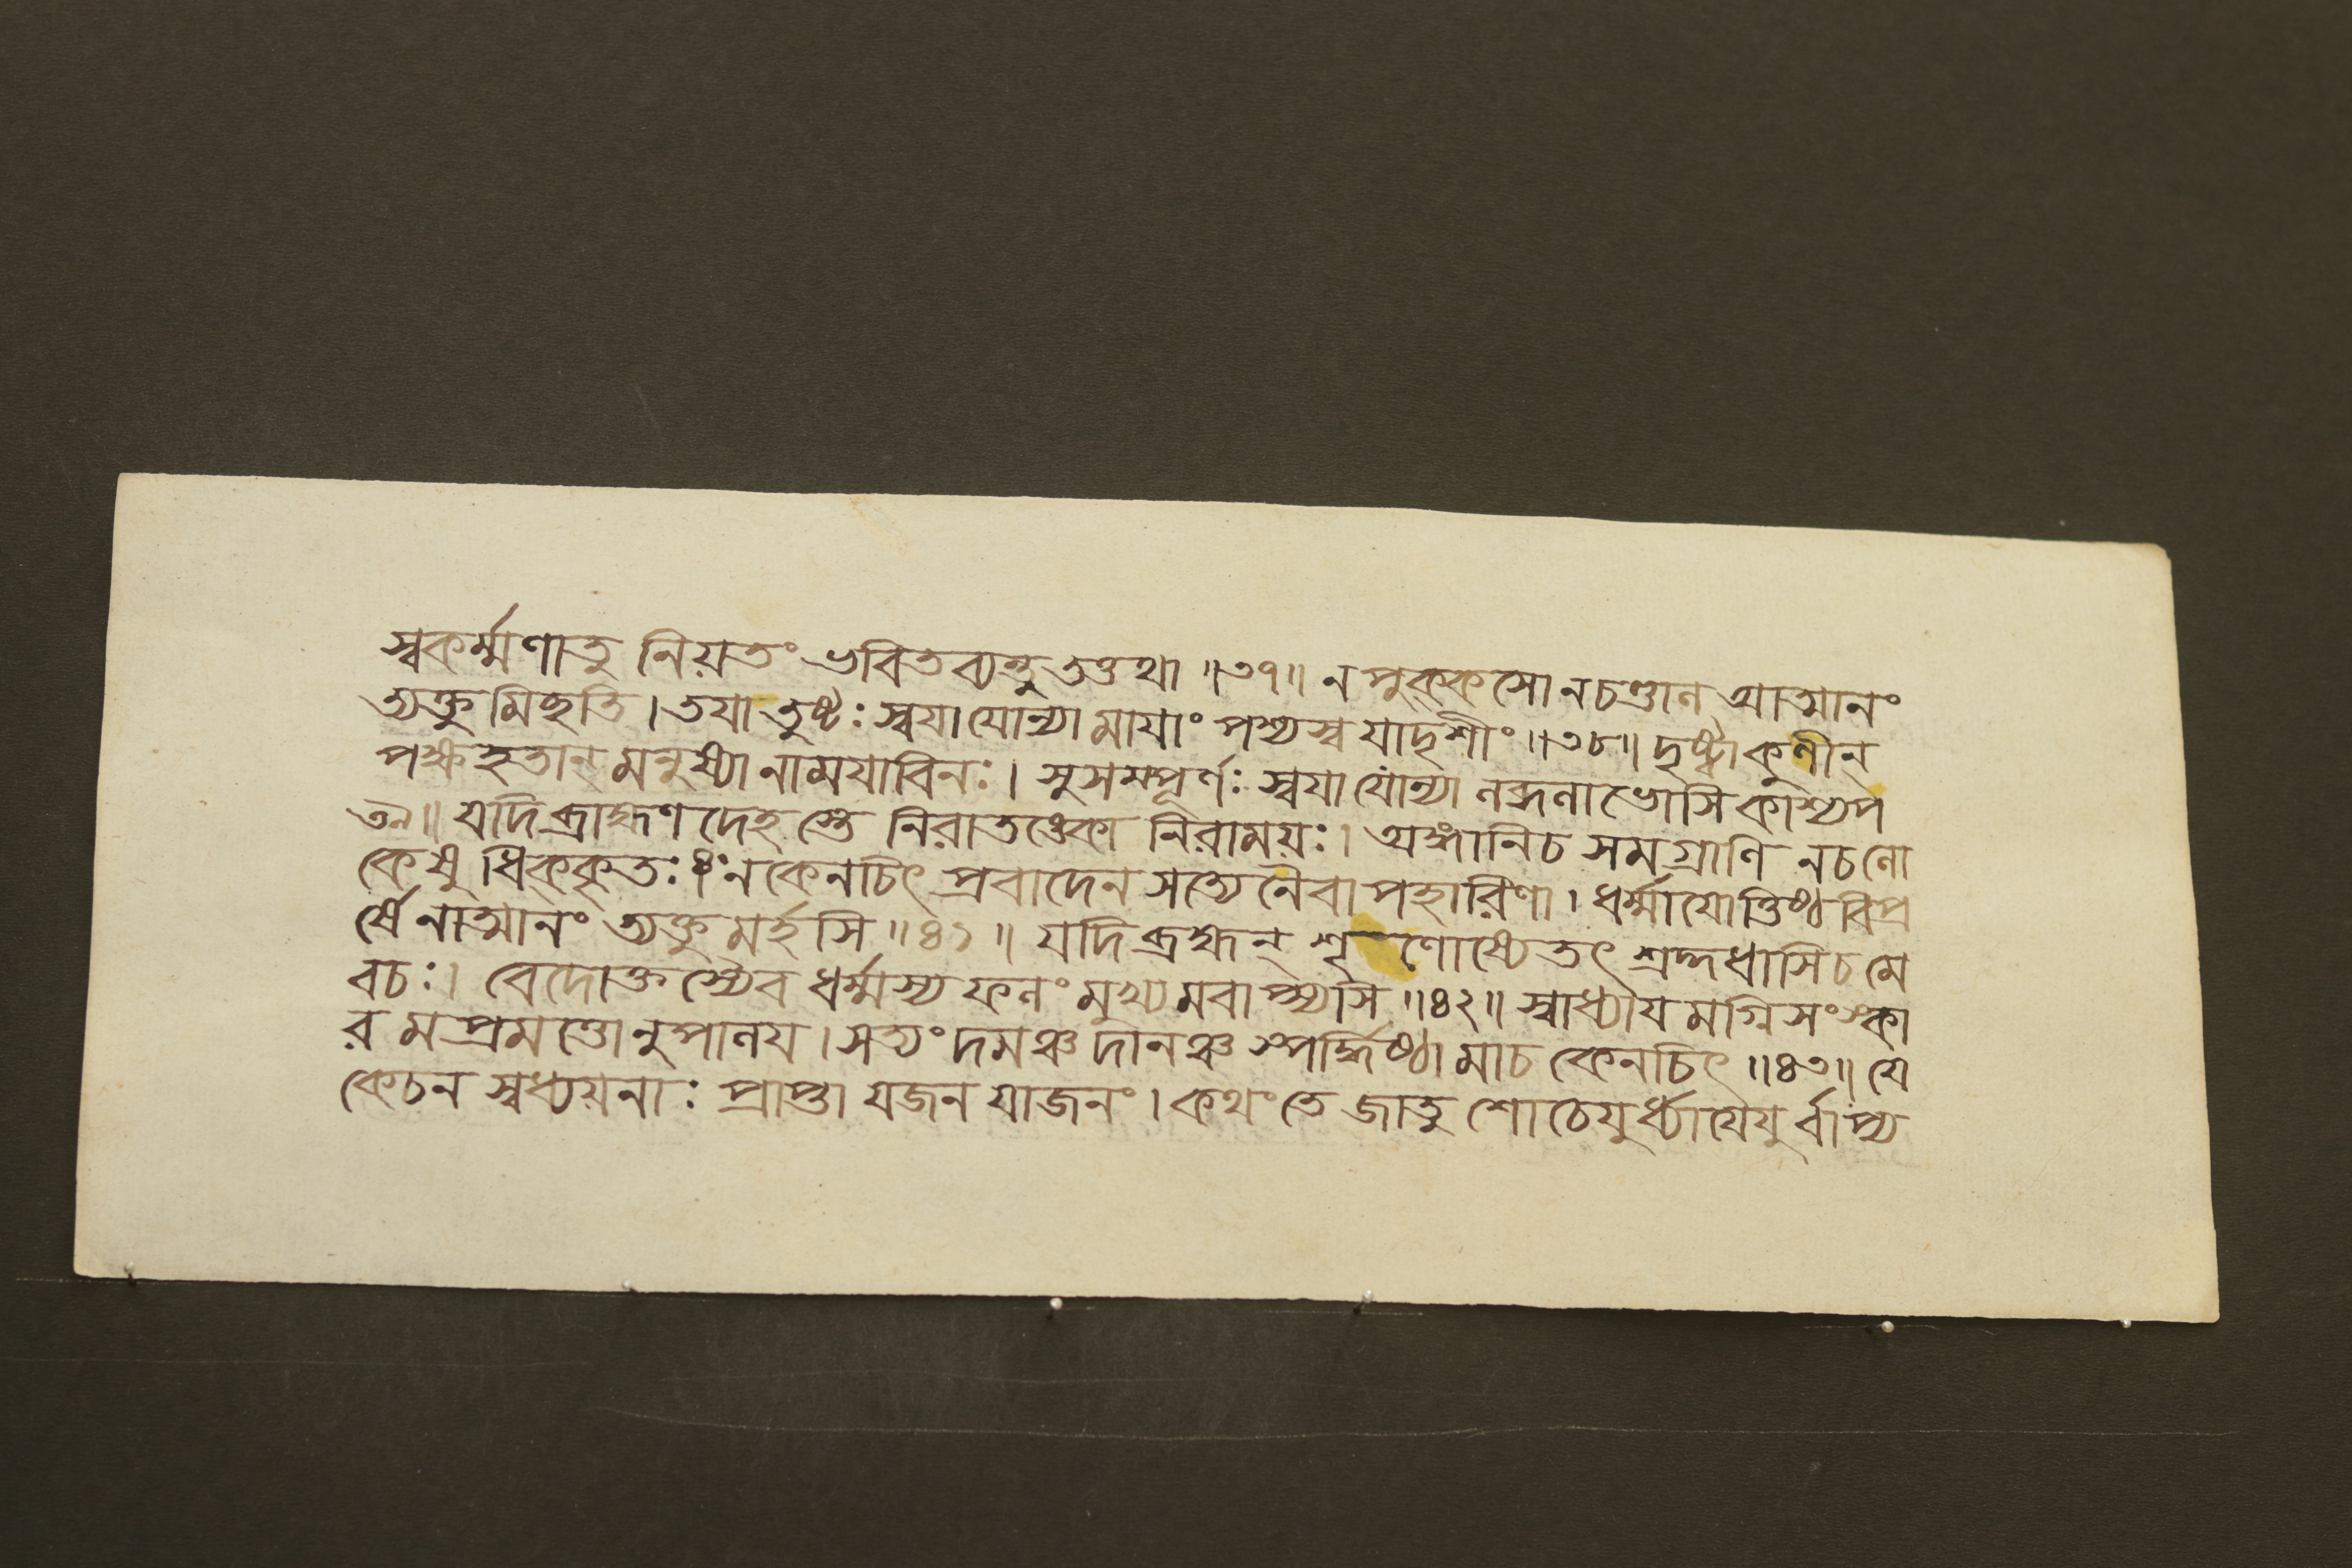 স্বকর্ম্মণাতু নিয়তং ভবিতব্যন্তু তত্তথা ॥৩৭॥ ন পুক্কসো ন চণ্ডাল আত্মানং
ত্যক্তুমিছতি । তযা তুষ্টঃ স্বযা যোন্যা মাযাং পশ্যস্ব যাদৃশীং ॥৩৮॥ দৃষ্ট্বা কুণীন্
পক্ষহতান্ মনুষ্যানামযাবিনঃ । সুসম্পূর্ণঃ স্বযা যোন্যা লব্ধলাভোসি কাশ্যপ
৩৯॥ যদি ব্রাহ্মণ দেহস্তে নিরাতঙ্কো নিরাময়ঃ । অঙ্গানি চ সমগ্রাণি ন চ লো
কেষু ধিক্কৃতঃ ॥ ন কেনচিৎ প্রবাদেন সত্যেনৈবাপহারিণা । ধর্ম্মাযোত্তিষ্ঠ বিপ্র
র্ষে নাত্মানং ত্যক্তুমর্হসি ॥৪১॥ যদি ব্রহ্মন্ শৃণোষ্যেতৎ শ্রদ্দধাসি চ মে
বচঃ । বেদোক্তস্যৈব ধর্ম্মস্য ফলং মুখ্যমবাপ্স্যসি ॥৪২॥ স্বাধ্যাযমগ্নিসংস্কা
রমপ্রমত্তোনুপালয । সত্যং দমঞ্চ দানঞ্চ স্পর্দ্ধিষ্ঠা মাচ কেনচিৎ ॥৪৩॥ যে
কেচন স্বধ্যয়নাঃ প্রাপ্তা যজন যাজনং । কথং তে জাতু শোচেযুর্ধ্যাযেযুর্বাপ্য